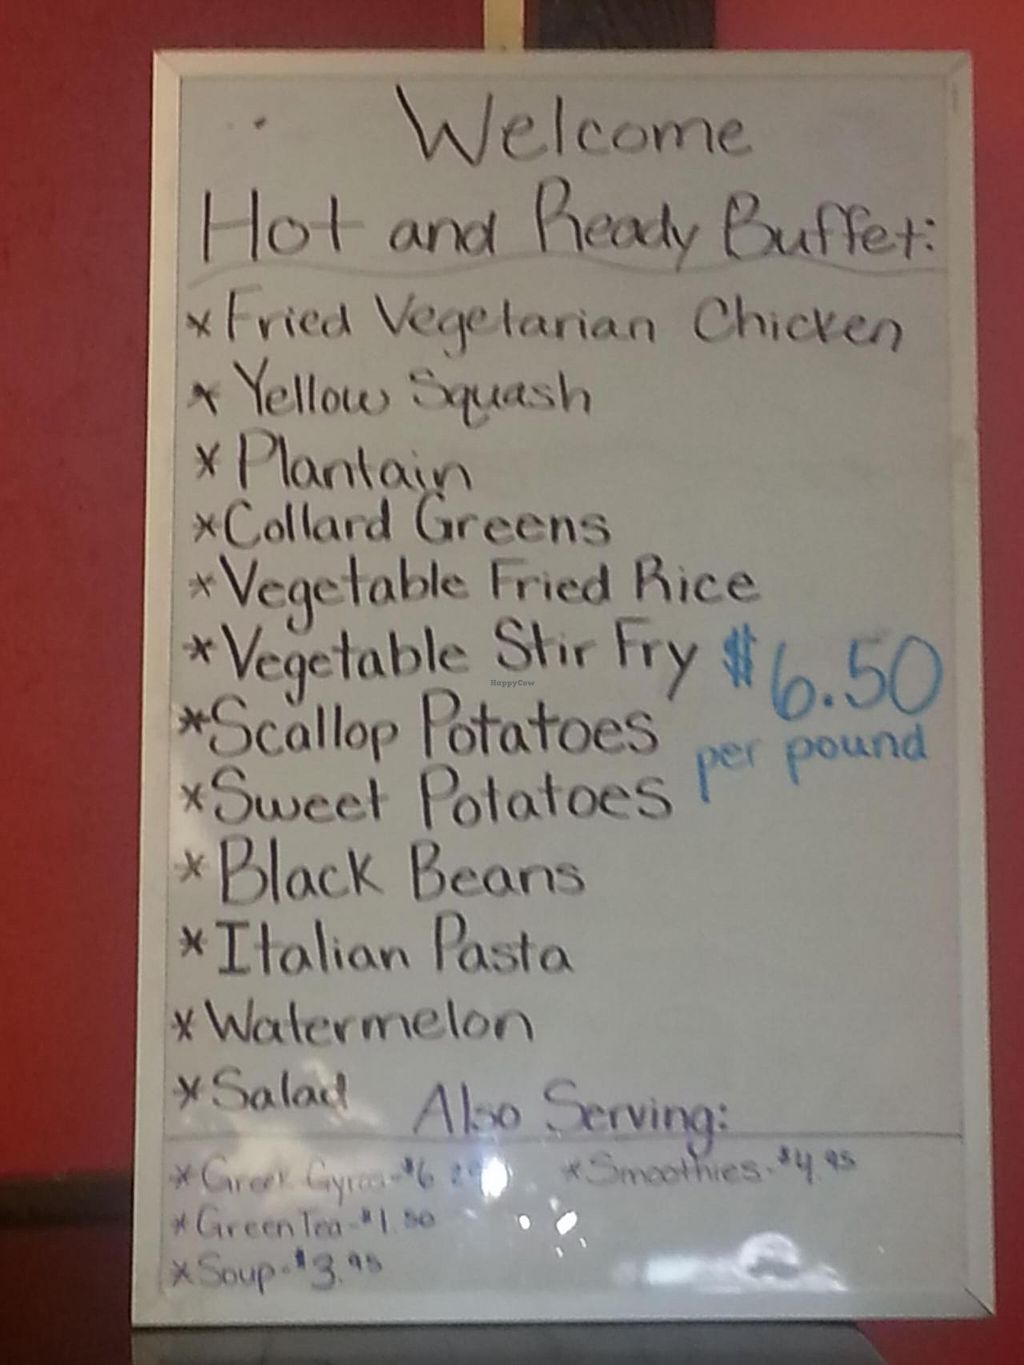 Welcome
Hot and Ready Buffet:
* Fried Vegetarian Chicken
* Yellow Squash
* Plantain
* Collard Greens
* Vegetable Fried Rice
* Vegetable Stir Fry $6.50
per pound
HappyCow
* Scallop Potatoes
* Sweet Potatoes
* Black Beans
* Italian Pasta
* Watermelon
* Salad
Also Serving:
* Greek Gyros - $6
* Smoothies - $4.95
* Green Tea - $1.50
* Soup - $3.95